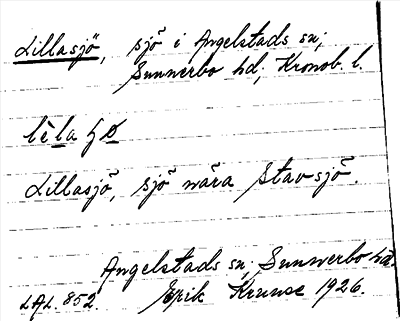 Lillasjö, sjö i Angelstads sn;
Sunnerbo hd; Kronob. l.
Lillasjö, sjö nära Stavsjö.
Angelstads sn, Sunnerbo hd.
LAL. 852. Erik Krunse 1926.